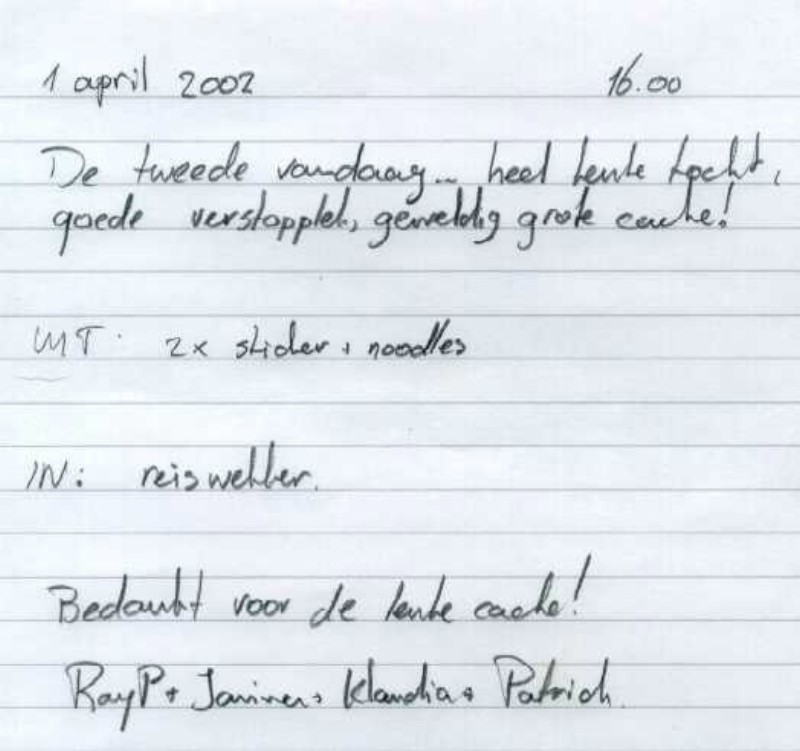 1 april 2002 16.00
De tweede vandaag... heel leuke tocht,
goede verstopplek, geweldig grote cache!
UIT: 2x sticker + noodles
IN: reiswekker.
Bedankt voor de leuke cache!
RayP + Janine + Klaudia + Patrick.